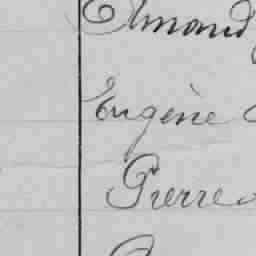 Edmond
Eugène
Pierre